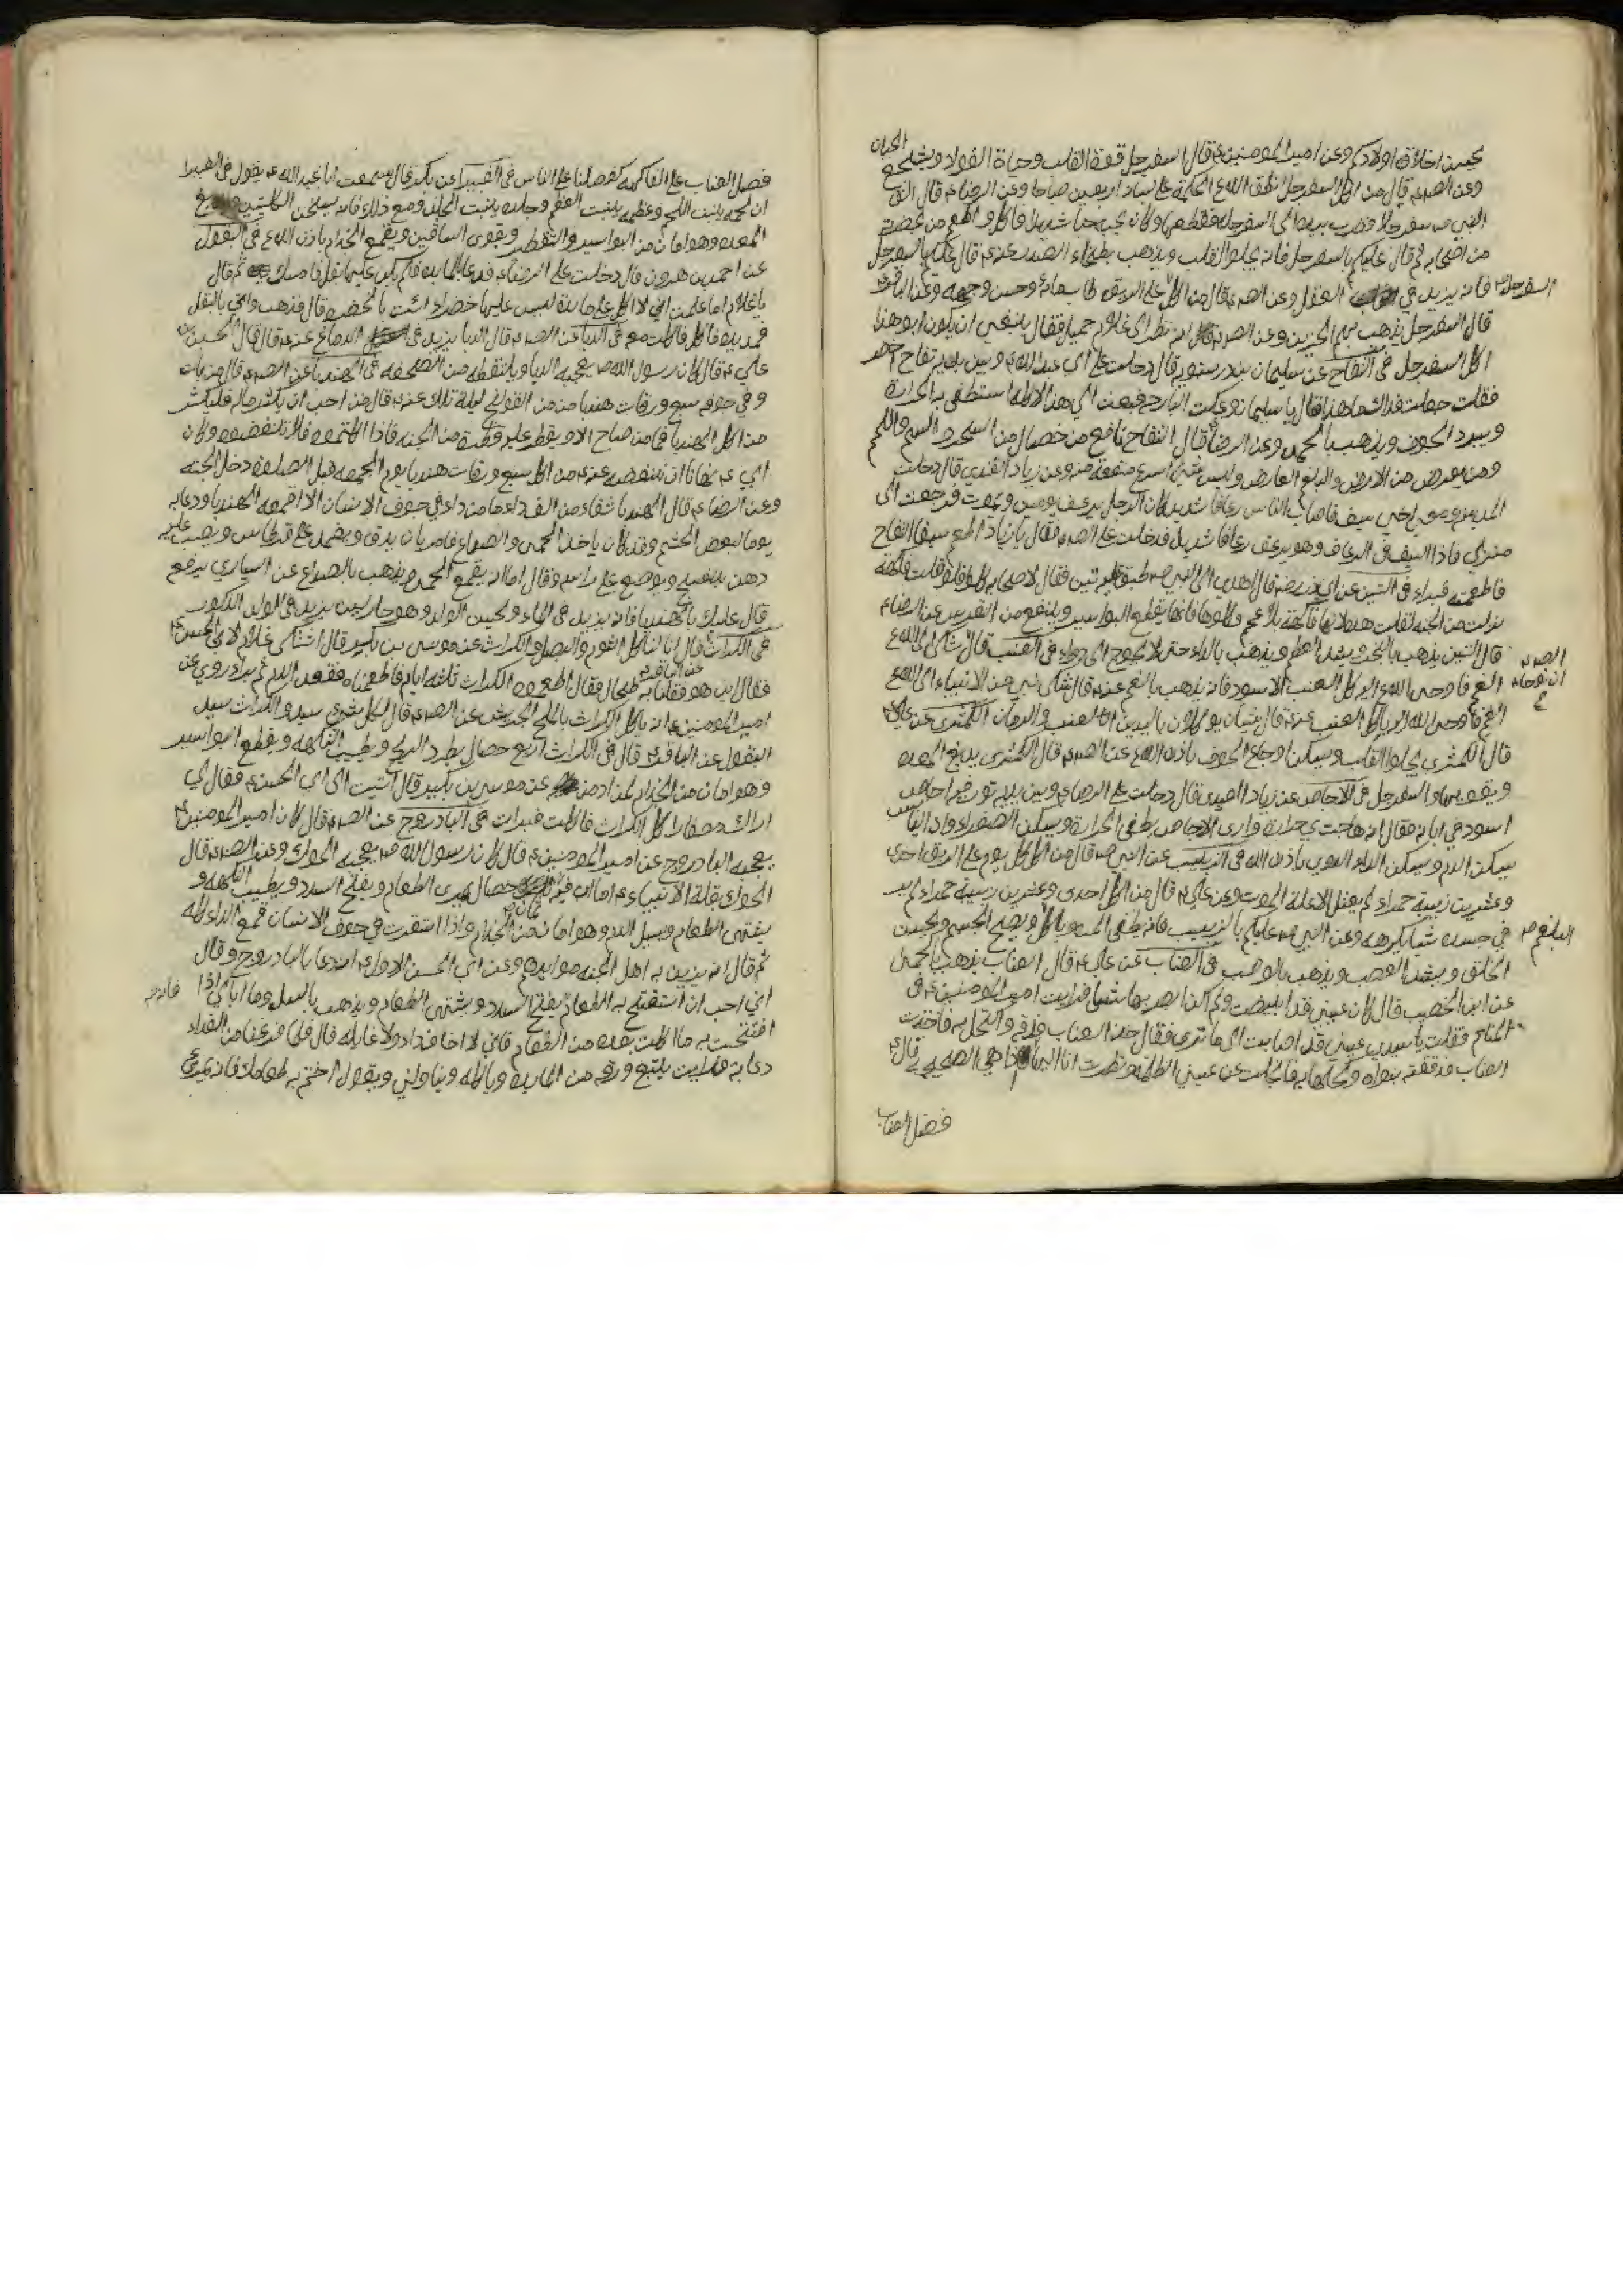 يحسن اخلاق اولادكم وعن امير المومنين ع قال السفرجل قوة القلب وحياة الفواد ويشجع الجبان
وعن الصم ع قال من اكل السفرجل انطق الله ع الحكمة على لسانه اربعين صباحا وعن الرضا ع قال
النبي ص سفرجلا وضرب بيده الى السفرجله فقطعها وكان يحبها حبا شديدا فاكل واطعم من بحضرته
من اصحابه ثم قال عليكم بالسفرجل فانه يجلو القلب ويذهب بطخاء الصدر عنه ع قال عليكم بالسفرجل
فانه يزيد في العقل وعن الصم ع قال من اكل على الريق طاب مائه وحسن وجهه وعن الباقر ع
قال السفرجل يذهب بهم الحزين وعن الصم ع انه نظر الى غلام جميل فقال ينبغي ان يكون ابو هذا
اكل السفرجل في التفاح عن سليمان بن درستويه قال دخلت على ابي عبد الله ع وبين يديه تفاح اخضر
فقلت جعلت فداك ما هذا قال يا سليمان وعكت البارحه فبعثت الى هذا لاكله استطفي به الحرارة
ويبرد الجوف ويذهب بالحمى وعن الرضا ع قال التفاح نافع من خصال من السحر والسم واللمم
ومن يعرض من الارض والبلغم العارض وليس شي اسرع منفعة منه وعن زياد القندي قال دخلت
المدينه ومعي اخي سيف فاصاب الناس رعافا شديدا كان الرجل يرعف يومين ويموت فرجعت الى
منزلي فاذا سيف في الرعاف وهو يرعف رعافا شديدا فدخلت على الصم ع فقال يا زياد اطعم سيفا التفاح
فاطعمته فبراء في التين عن ابي ذر رضه قال اهدى الى النبي ص طبق عليه تين فقال لاصحابه كلوا فلو قلت فاكهة
نزلت من الجنه لقلت هذه لانها فاكهة بلا عجم وكلوها فانها يقطع البواسير وينفع من النقرس عن الرضا ع
قال التين يذهب بالبخر ويشد العظم ويذهب بالداء حتى لا يحوج الى دواء في العنب قال شكى الى الله ع
الغم فاوحى الله اليه كل العنب الاسود فانه يذهب بالغم عنه ع قال شكى نبي من الانبياء الى الله ع
الغم فاوحى الله اليه ياكل العنب عنه ع قال شيئان يوكلان باليدين العنب والرمان الكمثرى عن علي ع
قال الكمثرى يجلو القلب ويسكن اوجاع الجوف باذن الله ع عن الصم ع قال الكمثرى يدبغ المعده
ويقويها هو والسفرجل في الاجاص عن زياد القندي قال دخلت على الرضا ع وبين يديه تور فيه اجاص
اسود في ابانه فقال انه هاجت بي حرارة وارى الاجاص يطفي الحرارة ويسكن الصفراء وان اليابس
يسكن الدم ويسكن الداء الدوي باذن الله في الزبيب عن النبي ص قال من اكل كل يوم على الريق احدى
وعشرين زبيبة حمراء لم يعتل الا علة الموت وعن علي ع قال من اكل احدى وعشرين زبيبة حمراء لم ير
في جسده شيا يكرهه وعن النبي ص عليكم بالزبيب فانه يطفي المره وياكل ويصح الجسم ويحسن
الخلق ويشد العصب ويذهب بالوصب في العناب عن علي ع قال العناب يذهب بالحمى
عن ابن الخضيب قال كان عيني قد ابيضت ولم اكن ابصر بها شيا فرايت امير المومنين ع في
المنام فقلت يا سيدي عيني قد اصابت الى ما ترى فقال خذ العناب فدقه واكتحل به فاخذت
العناب فدققته بنواه وكحلتها به فانجلت عن عيني الظلمة ونظرت انا اليها اذا هي الصحيحه قال ع
السفرجل
الصم ع
ان نوحا ع
البلغم
فضل العناب
فضل العناب على الفاكهه كفضلنا على الناس في الغبيرا عن بكر قال سمعت ابا عبد الله ع يقول في الغبيرا
ان لحمه ينبت اللحم وعظمه ينبت العظم وجلده ينبت الجلد ومع ذلك فانه يسخن الكليتين ويدبغ
المعده وهو امان من البواسير والتقطير ويقوى الساقين ويقمع الجذام باذن الله ع في البقول
عن احمد بن هرون قال دخلت على الرضا ع فدعا بالمايده فلم يكن عليها بقل فامسك يده ثم قال
يا غلام اما علمت اني لا اكل على مايدة ليس عليها خضراء ائت بالخضره قال فذهب واتى بالبقل
فمد يده فاكل فاكلت معه في الدبا عن الصم ع قال الدبا يزيد في الدماغ عنه ع قال قال الحسين بن
علي ع قال كان رسول الله ص يعجبه الدبا ويلتقطه من الصحفه في الهندبا عن الصم ع قال من بات
وفي جوفه سبع ورقات هندبا من من القولنج ليلة تلك عنه ع قال من احب ان يكثر ماله فليكثر
من اكل الهندبا فما من صباح الا ويقطر عليه قطرة من الجنه فاذا اكلتموه فلا تنفضوه وكان
ابي ع ينهانا ان ننفضه عنه ع من اكل سبع ورقات هندبا يوم الجمعه قبل الصلوة دخل الجنه
وعن الرضا ع قال الهندبا شفاء من الف داء ما من داء في جوف الانسان الا اقمعه الهندبا ودعا به
يوما لبعض الحشم وقد كان ياخذ الحمى والصداع فامر بان يدق ويضمد على قرطاس ويصب عليه
دهن بنفسج ويوضع على راسه وقال اما انه يقمع الحمى ويذهب بالصداع عن السياري يرفع
قال عليك بالهندبا فانه يزيد في الماء ويحسن الولد وهو حار لين يزيد في الولد الذكور
في الكراث قال انا لناكل الثوم والبصل والكراث عن موسى بن بكير قال اشتكى غلام لابي الحسن ع
فقال اين هو فقلنا به طحال فقال اطعموه الكراث ثلثه ايام فاطعمناه فقعد الدم ثم براء روي عن
امير المومنين ع انه ياكل الكراث بالملح الجريش عن الصم ع قال لكل شي سيد والكراث سيد
البقول عن الباقر ع قال في الكراث اربع خصال يطرد الريح ويطيب النكهه ويقطع البواسير
وهو امان من الجذام لمن ادمن عن موسى بن بكير قال اتيت الى ابي الحسن ع فقال لي
اراك مصفارا كل الكراث فاكلت فبرات في الباذروج عن الصم ع قال كان امير المومنين ع
يعجبه الباذروج عن امير المومنين ع قال كان رسول الله ص يعجبه الحوك وعن الصم ع قال
الحوك بقلة الانبياء ع اما ان فيه ثمان خصال يمرى الطعام ويفتح السدد ويطيب النكهه و
يشهى الطعام ويسل الدم وهو امان من الجذام واذا استقرت في جوف الانسان قمع الداء كله
ثم قال انه يزين به اهل الجنه موايدهم وعن ابي الحسن الاول ع انه دعا بالباذروج وقال
اني احب ان استفتح به الطعام يفتح السدد ويشتهى الطعام ويذهب بالسل وما ابالي اذا
افتتحت به ما اكلت بعده من الطعام فاني لا اخاف داء ولا غايله قال فلما فرغنا من الغداء
دعا به فرايت يتتبع ورقه من المايده وياكله ويناولني ويقول اختم به طعامك فانه يمرى
فانه